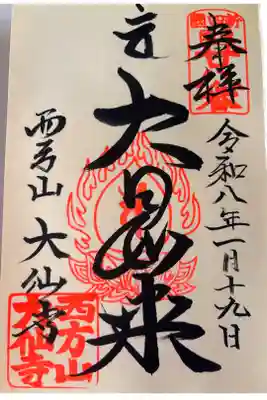 奉拝
令和八年一月十九日
大日如来
西方山 大仙寺
西方山
大仙寺